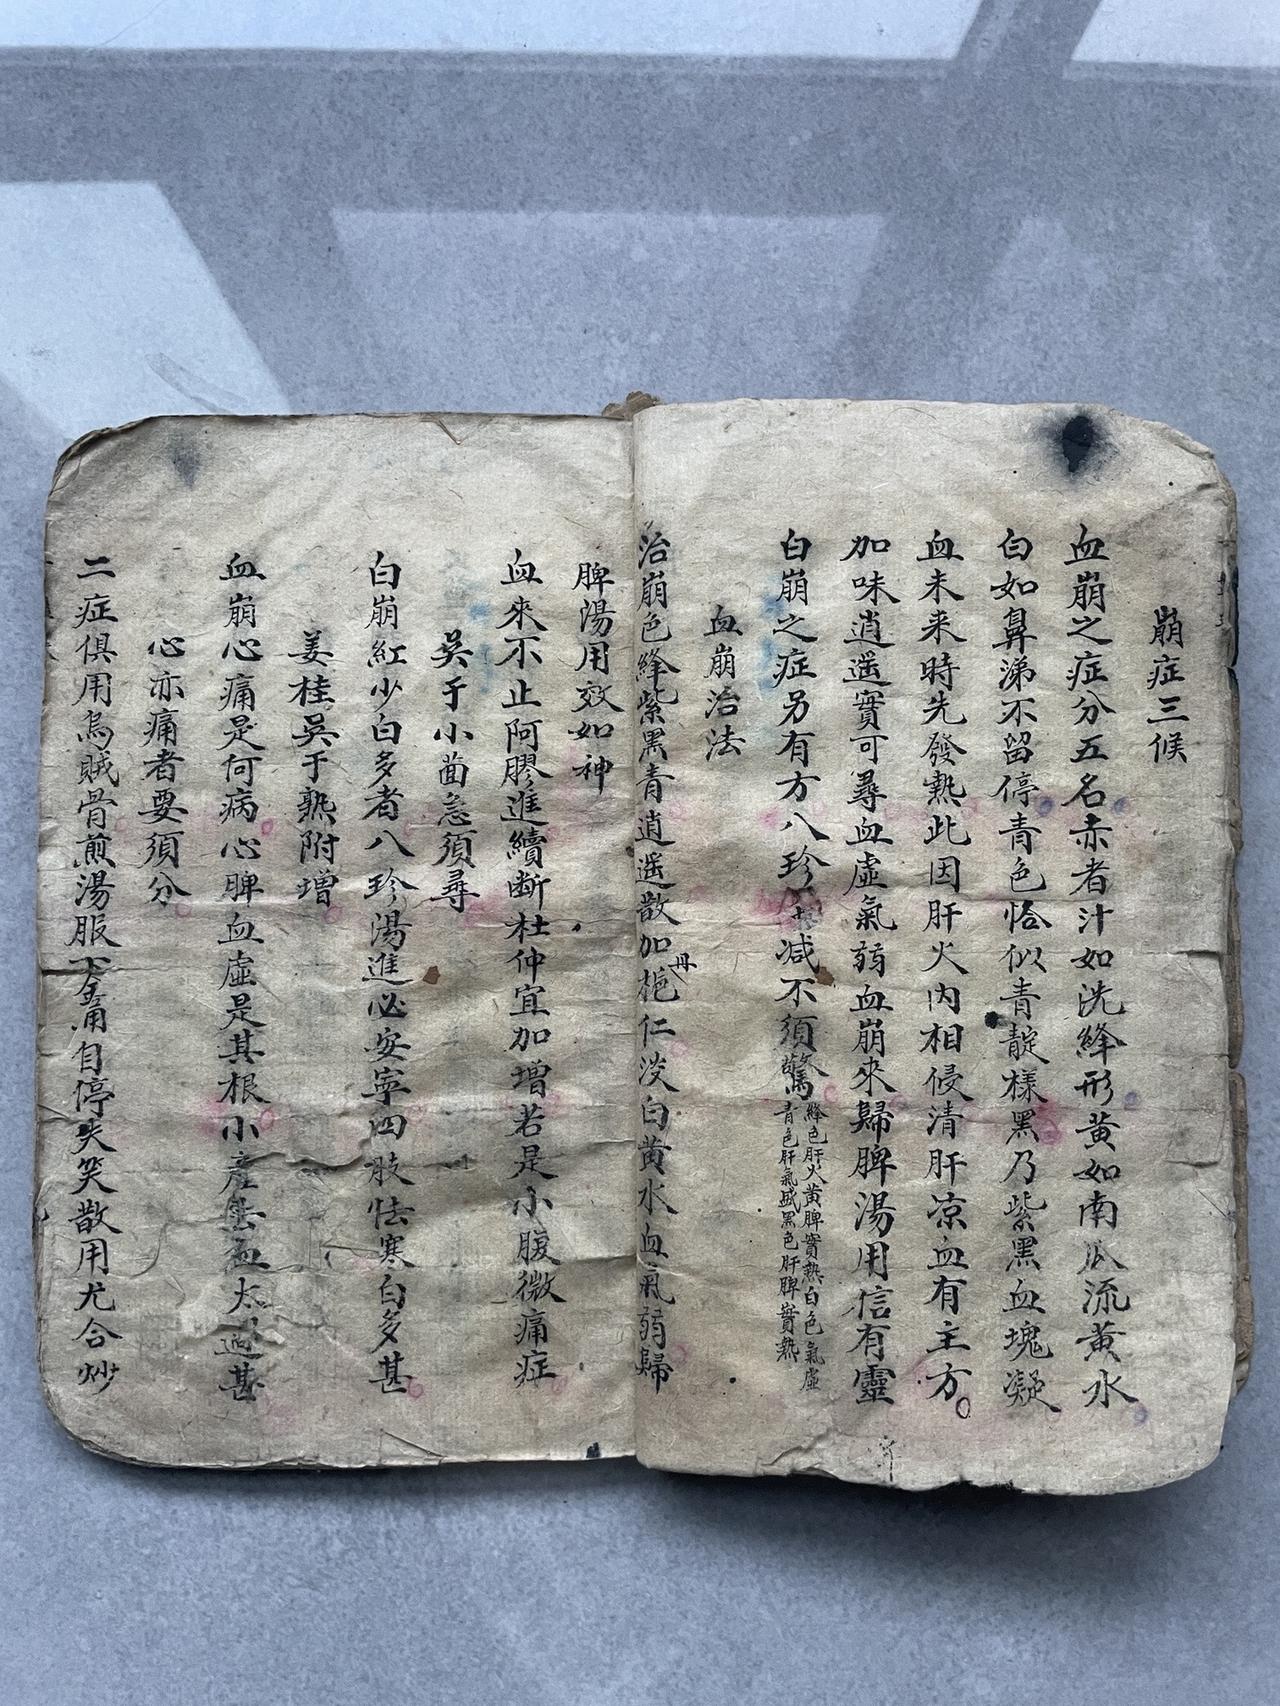 崩症三候
血崩之症分五名赤者汁如洗絳形黄如南瓜流黄水
白如鼻涕不留停青色恰似青靛樣黑乃紫黑血塊凝
血未来時先發熱此因肝火内相侵清肝凉血有主方
加味逍遥實可尋血虛氣弱血崩來歸脾湯用信有靈
白崩之症另有方八珍減不須驚
絳色肝火黄脾實熱白色氣虛
青色肝氣盛黑色肝脾實熱
血崩治法
治崩色絳紫黑青逍遥散加丹栀仁淡白黄水血氣弱歸
脾湯用效如神
血來不止阿膠進續斷杜仲宜加增若是小腹微痛症
吳于小茴急須尋
白崩紅少白多者八珍湯進必安寧四肢怯寒白多甚
姜桂吳于熟附增
血崩心痛是何病心脾血虛是其根小產血太過甚
心亦痛者要須分
二症俱用烏賊骨煎湯服下痛自停失笑散用尤合炒